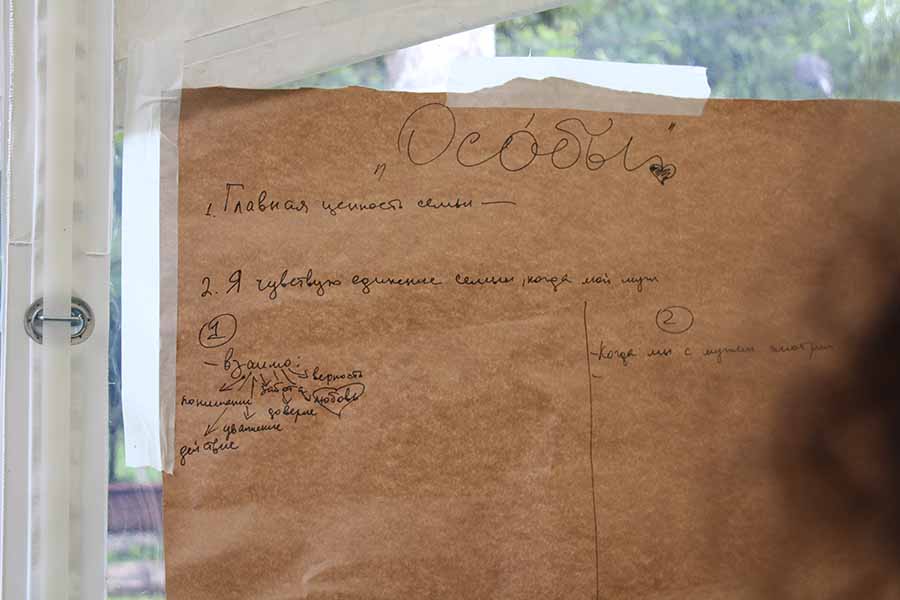 „Осо́бы"
1. Главная ценность семьи —
2. Я чувствую единение семьи, когда мой муж
1
- взаимо:
верность
забота
любовь
понимание
доверие
уважение
действие
2
- Когда мы с мужем
-